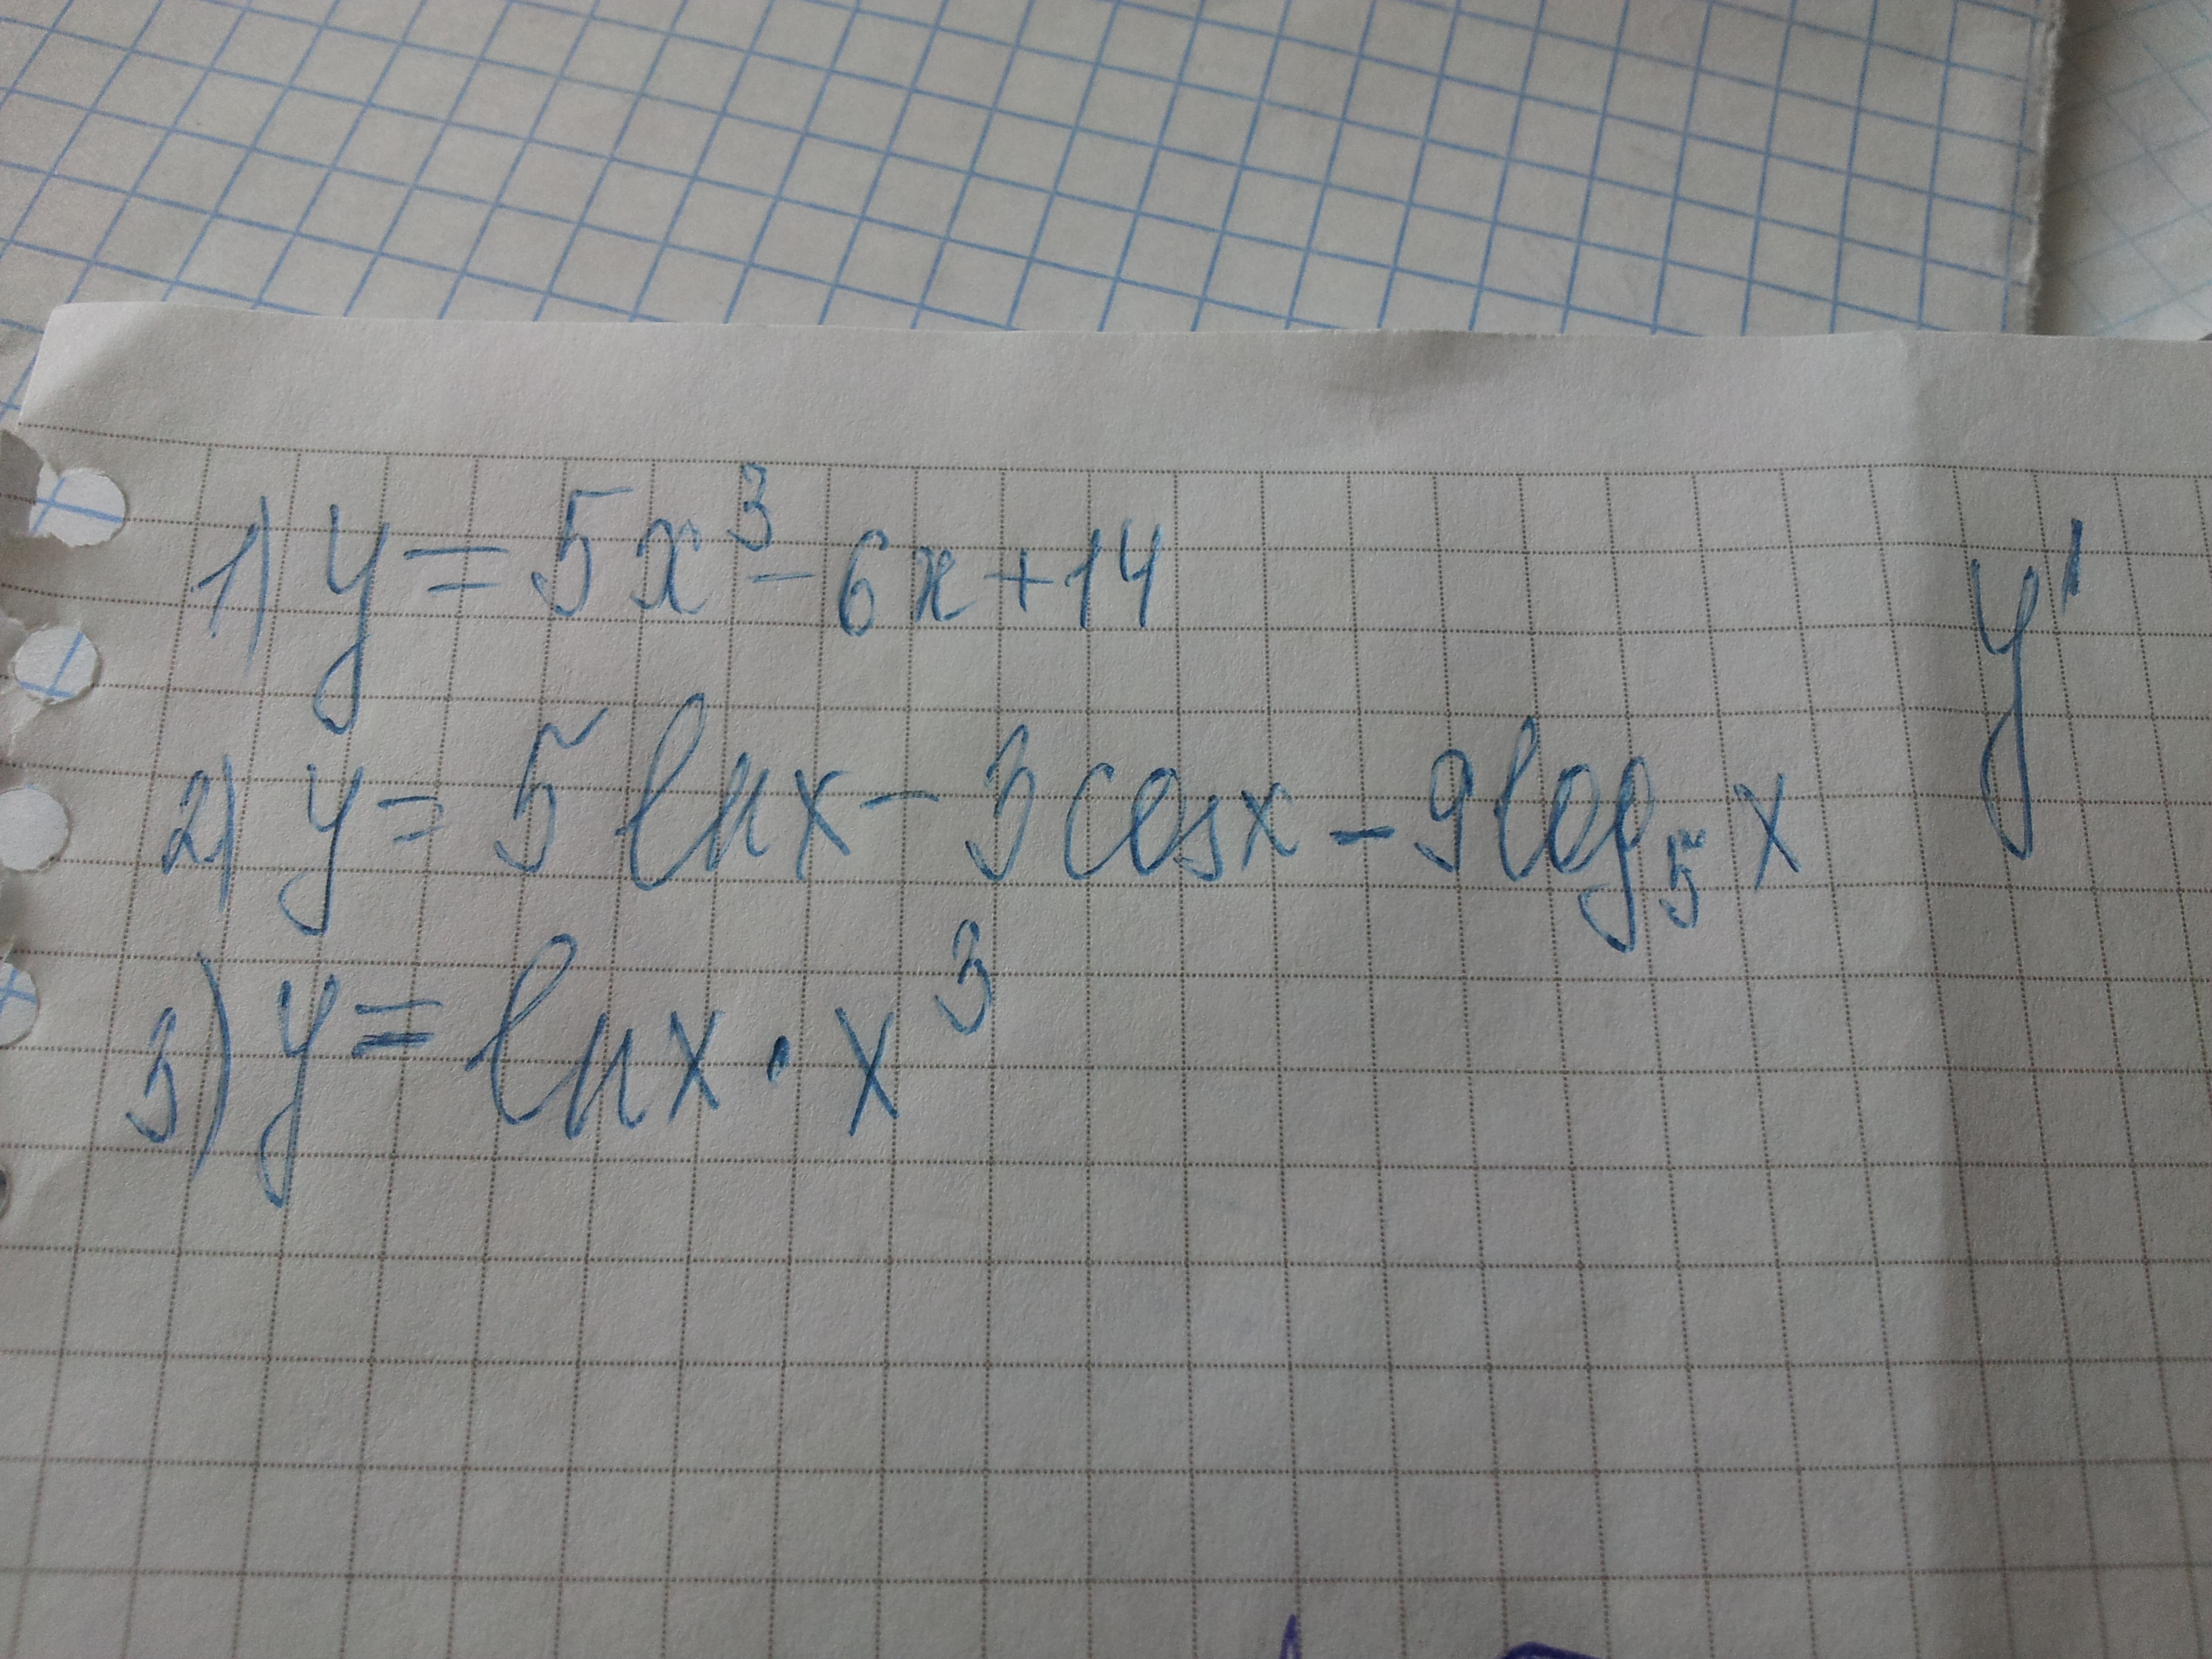 1) y = 5x³ - 6x + 14
y'
2) y = 5 ln x - 3 cos x - 9 log₅ x
3) y = ln x · x³